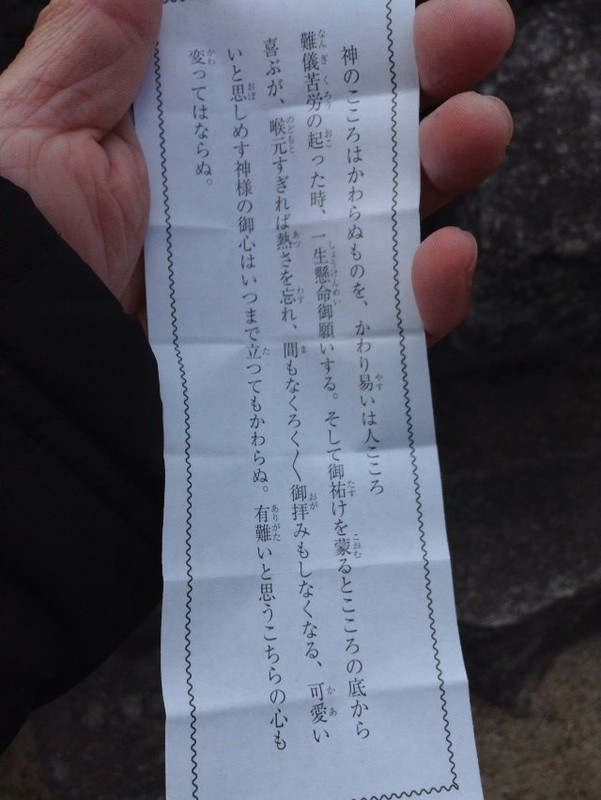 神のこころはかわらぬものを、かわり易いは人こころ
難儀苦労の起った時、一生懸命御願いする。そして御祐けを蒙るとこころの底から
喜ぶが、喉元すぎれば熱さを忘れ、間もなくろく〱御拝みもしなくなる、可愛い
いと思しめす神様の御心はいつまで立つてもかわらぬ。有難いと思うこちらの心も
変ってはならぬ。